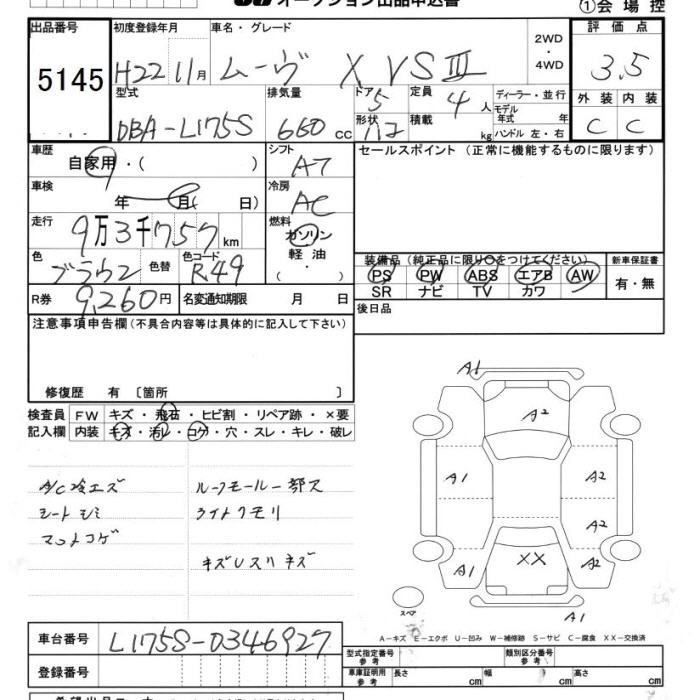 オークション出品申込書 ①会場控
出品番号 初度登録年月 車名・グレード 2WD・4WD 評価点
5145 H22 11月 ムーヴ X VS Ⅲ 3.5
型式 排気量 ドア 定員 ディーラー・並行 外装 内装
DBA-L175S 660cc 5 4人 モデル年式 年 C C
形状 積載 kg ハンドル 左・右
車歴 自家用・( ) シフト AT セールスポイント (正常に機能するものに限ります)
車検 年 月( 日) 冷房 AC
走行 9万3千757km 燃料 ガソリン
色 ブラウン 色替 色コード R49 軽油・( )
装備品 (純正品に限り○をつけてください) 新車保証書
PS PW ABS エアB AW 有・無
SR ナビ TV カワ
R券 9,260円 名変通知期限 月 日 後日品
注意事項申告欄(不具合内容等は具体的に記入して下さい)
修復歴 有 〔箇所 〕
検査員 FW キズ・飛石・ヒビ割・リペア跡・×要
記入欄 内装 キズ・汚レ・コゲ・穴・スレ・キレ・破レ
A/C冷エズ ルーフモール一部欠
シートシミ ライトクモリ
マットコゲ
A1
A2
A1 A2
A2
A1 XX A2
スペア
A1
A-キズ E-エクボ U-凹み W-補修跡 S-サビ C-腐食 XX-交換済
車台番号 L175S-0346927
型式指定番号 参考 類別区分番号 参考
登録番号 車庫証明用 参考 長さ cm 幅 cm 高さ cm